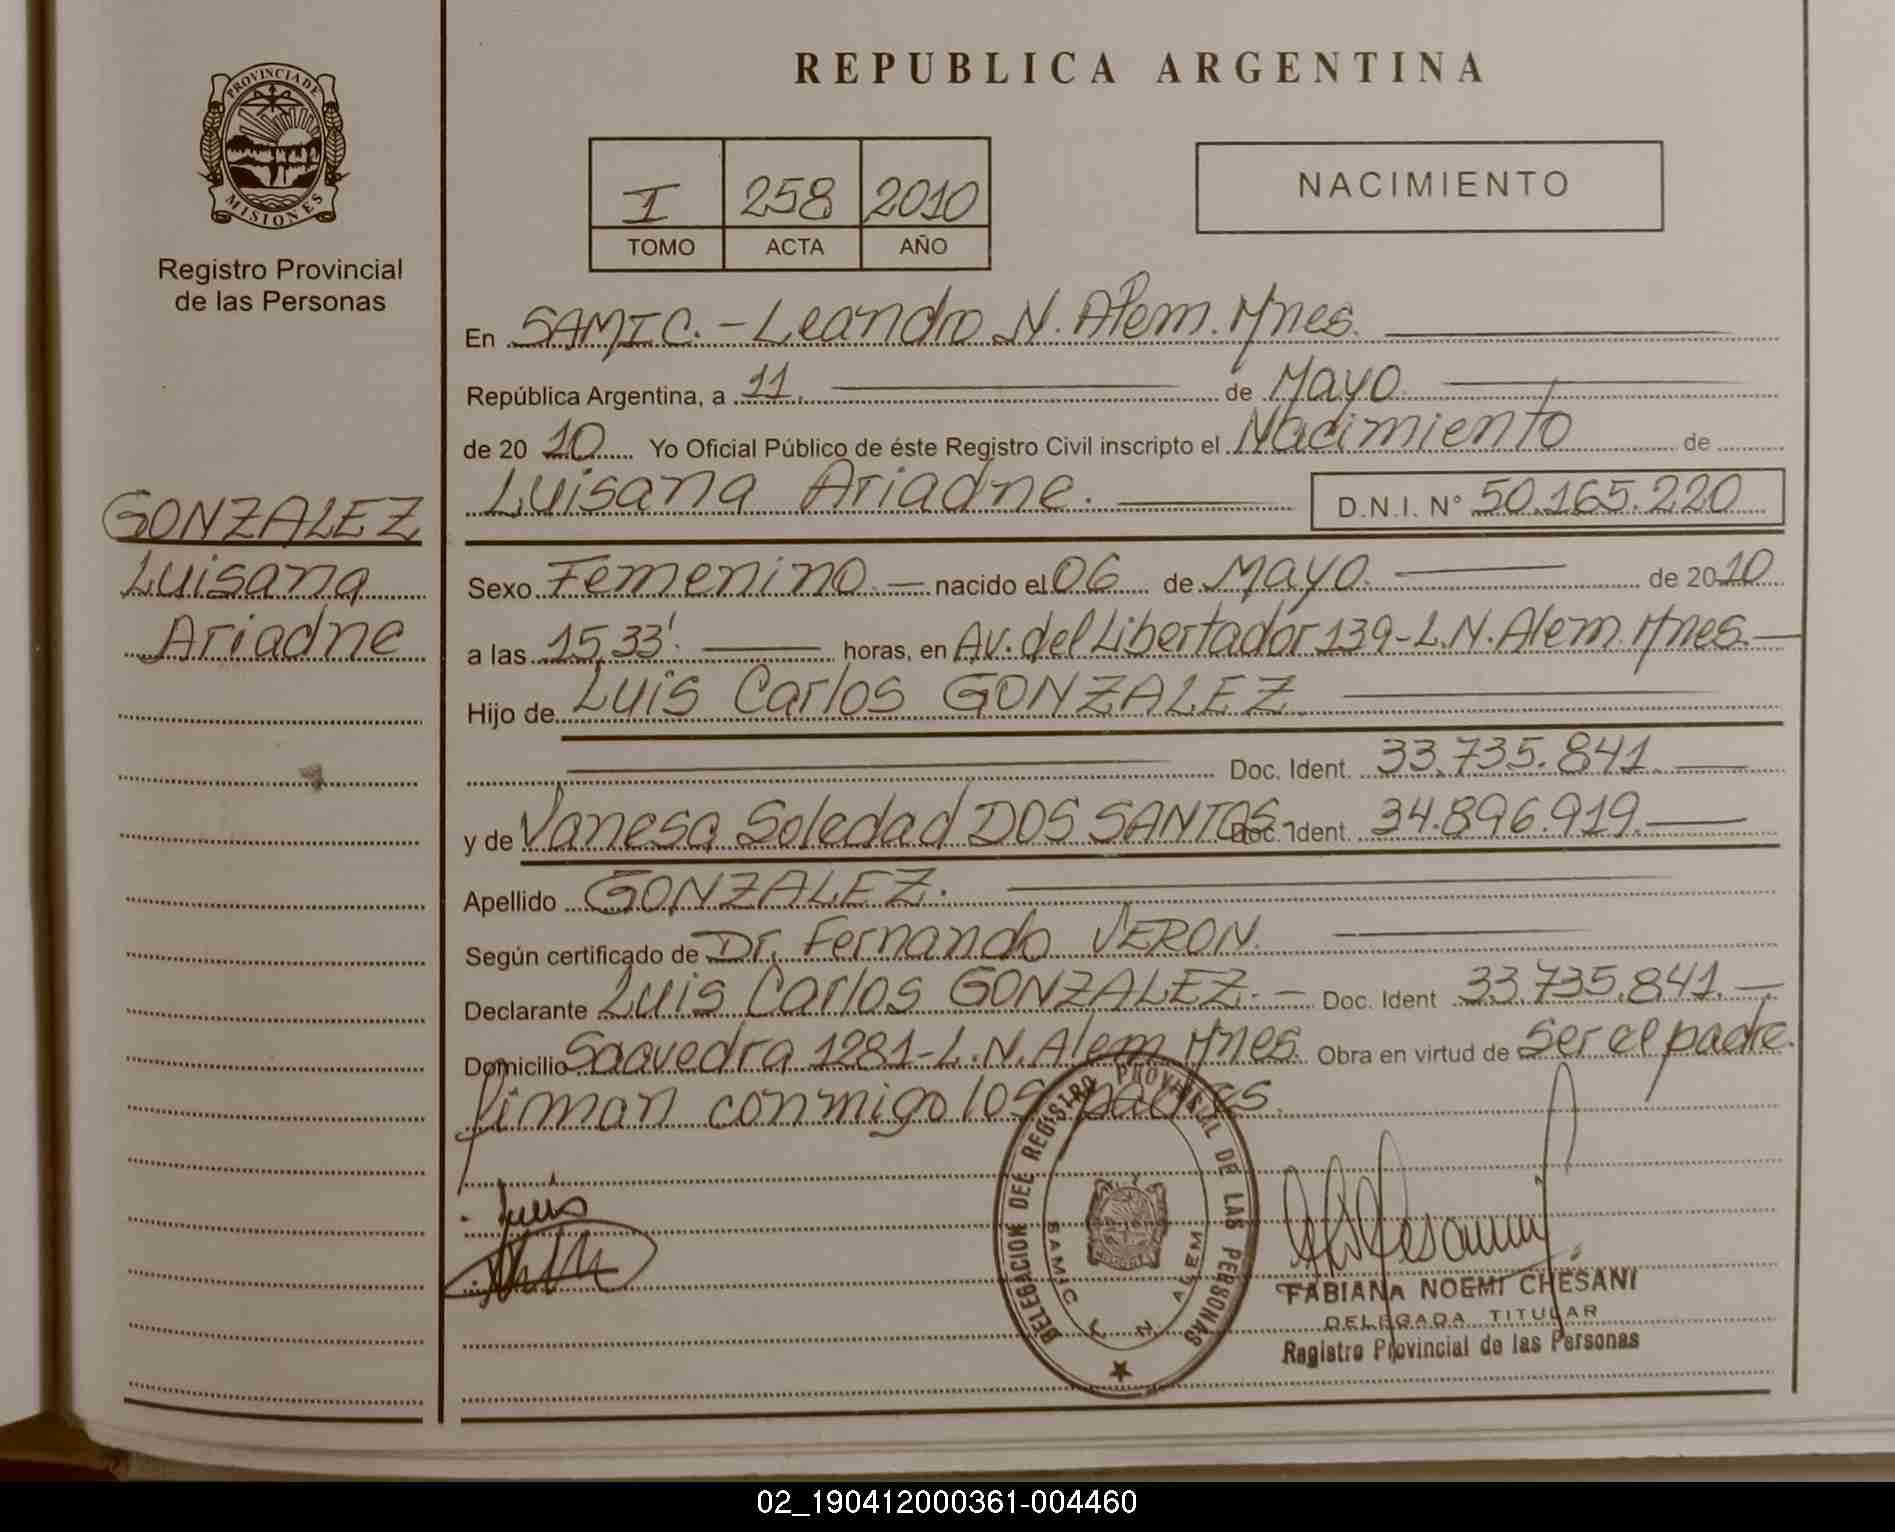 REPUBLICA ARGENTINA
PROVINCIA DE
MISIONES
Registro Provincial
de las Personas
I 258 2010
TOMO ACTA AÑO
NACIMIENTO
En SAMIC. - Leandro N. Alem. Mnes.
República Argentina, a 11. de Mayo.
de 20 10 Yo Oficial Público de éste Registro Civil inscripto el Nacimiento de
Luisana Ariadne. D.N.I. N° 50.165.220
GONZALEZ
Luisana
Ariadne
Sexo Femenino. nacido el 06 de Mayo. de 2010
a las 15,33'. horas, en Av. del Libertador 139-L.N. Alem. Mnes.
Hijo de Luis Carlos GONZALEZ.
Doc. Ident. 33.735.841.
y de Vanesa Soledad DOS SANTOS. Doc. Ident. 34.896.919.
Apellido GONZALEZ.
Según certificado de Dr. Fernando VERON.
Declarante Luis Carlos GONZALEZ. - Doc. Ident 33.735.841.
Domicilio Saavedra 1281-L.N. Alem Mnes. Obra en virtud de ser el padre.
firman conmigo los padres.
Luis
DELEGACION DEL REGISTRO PROVINCIAL DE LAS PERSONAS
SAMIC L N ALEM
FABIANA NOEMI CHESANI
DELEGADA TITULAR
Registro Provincial de las Personas
02_190412000361-004460